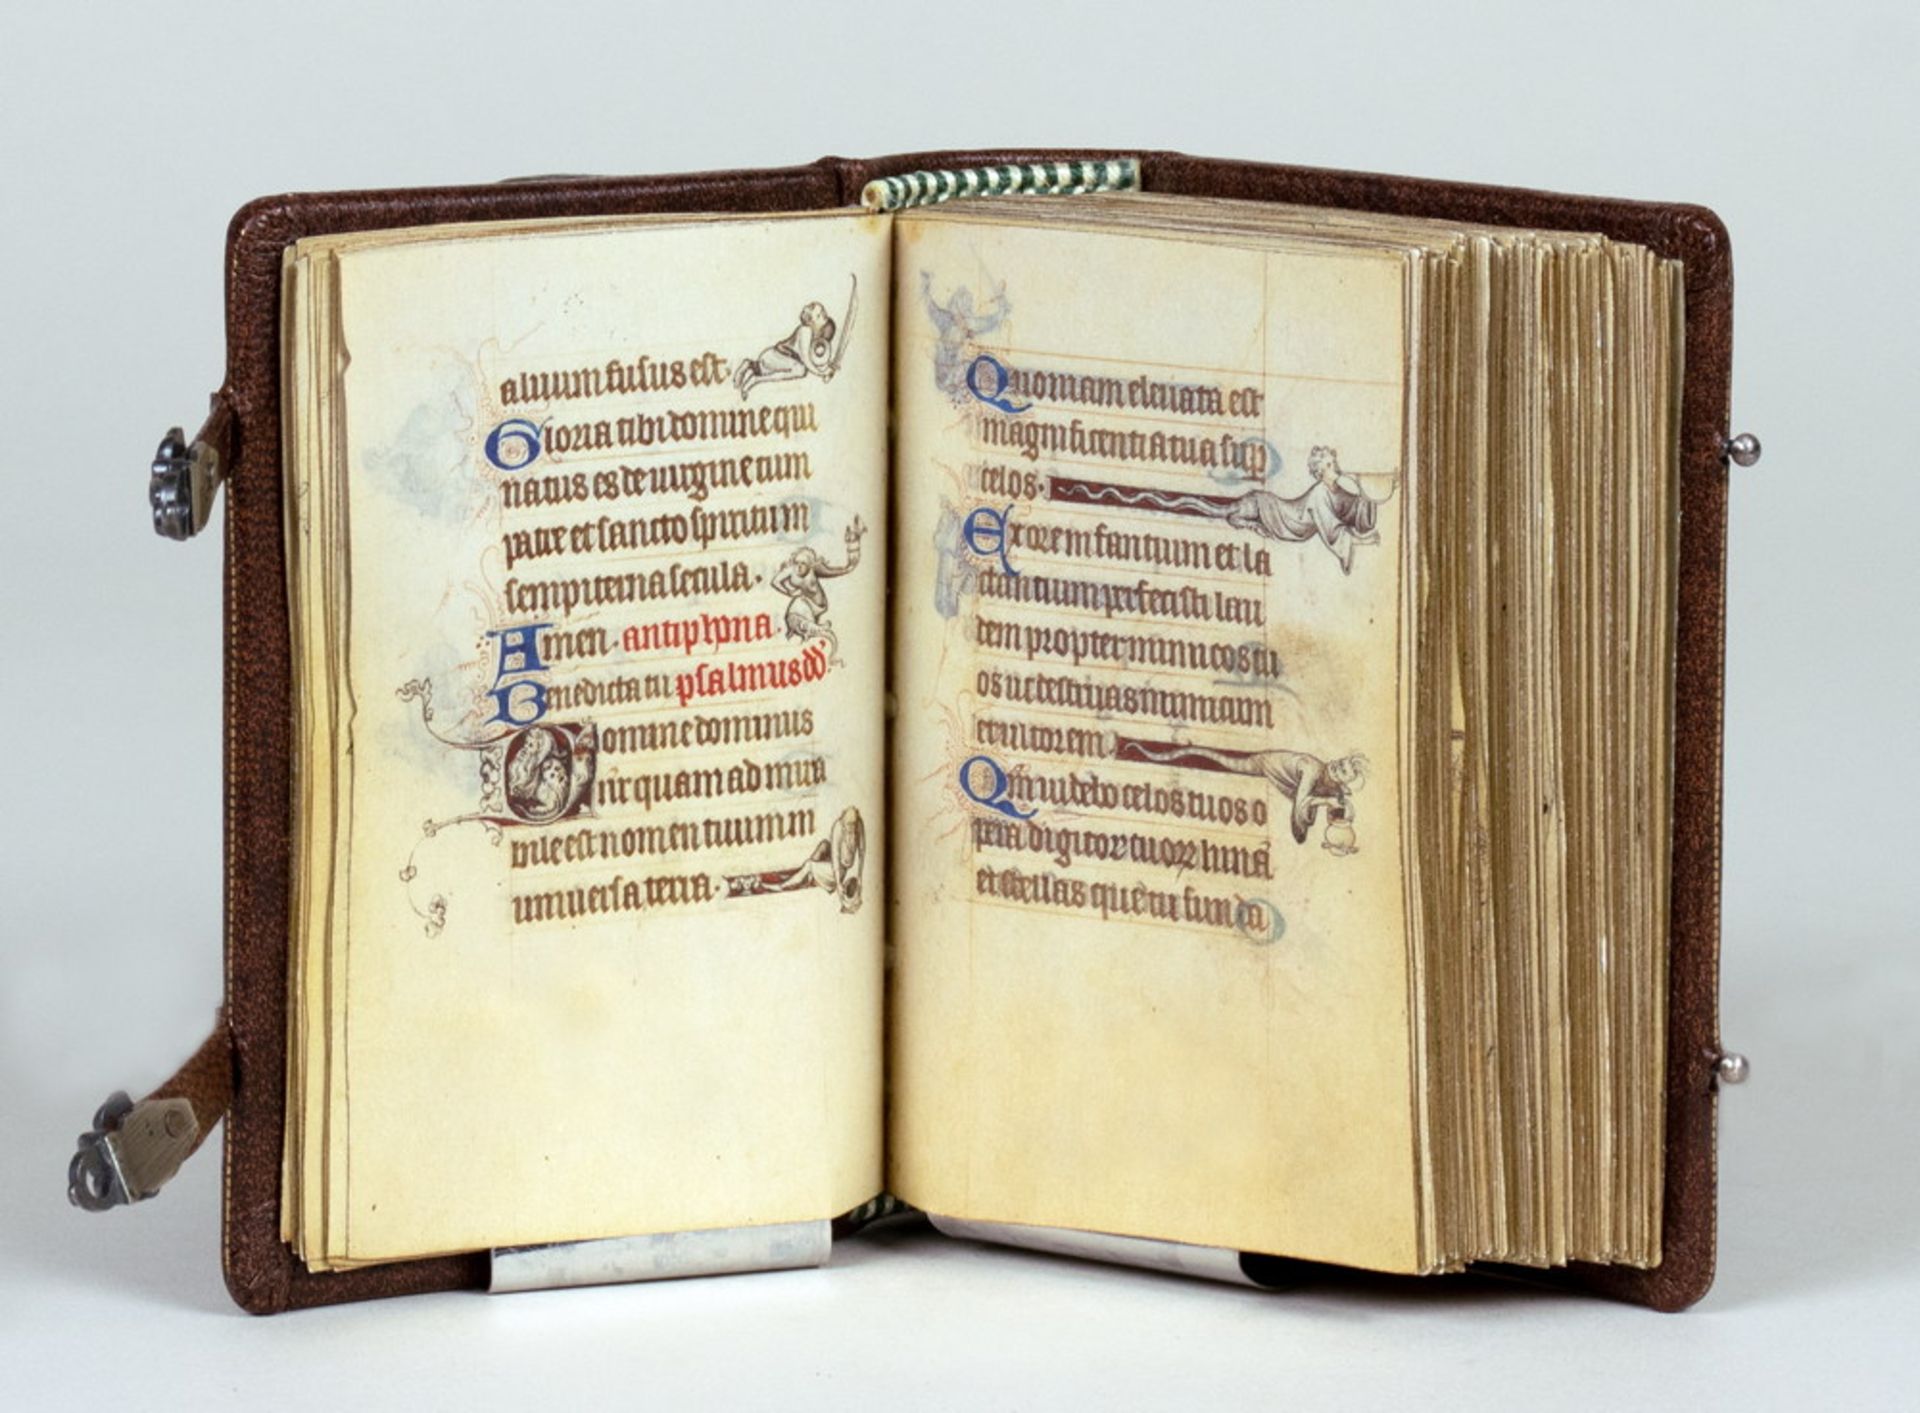 aluum fusus est.
Gloria tibi domine qui
natus es de uirgine cum
patre et sancto spiritum
sempiterna secula.
Amen. antiphona.
Benedicta tu psalmus dd'
Domine dominus
nr̄ quam ad mira
bile est nomen tuum in
uniuersa terra.
Quoniam eleuata est
magnificentia tua sup
celos.
Ex ore infantium et la
ctantium perfecisti lau
dem propter inimicos tu
os ut destruas inimicum
et ultorem
Qm̄ uidebo celos tuos o
pera digitor tuor luna
et stellas que tu funda